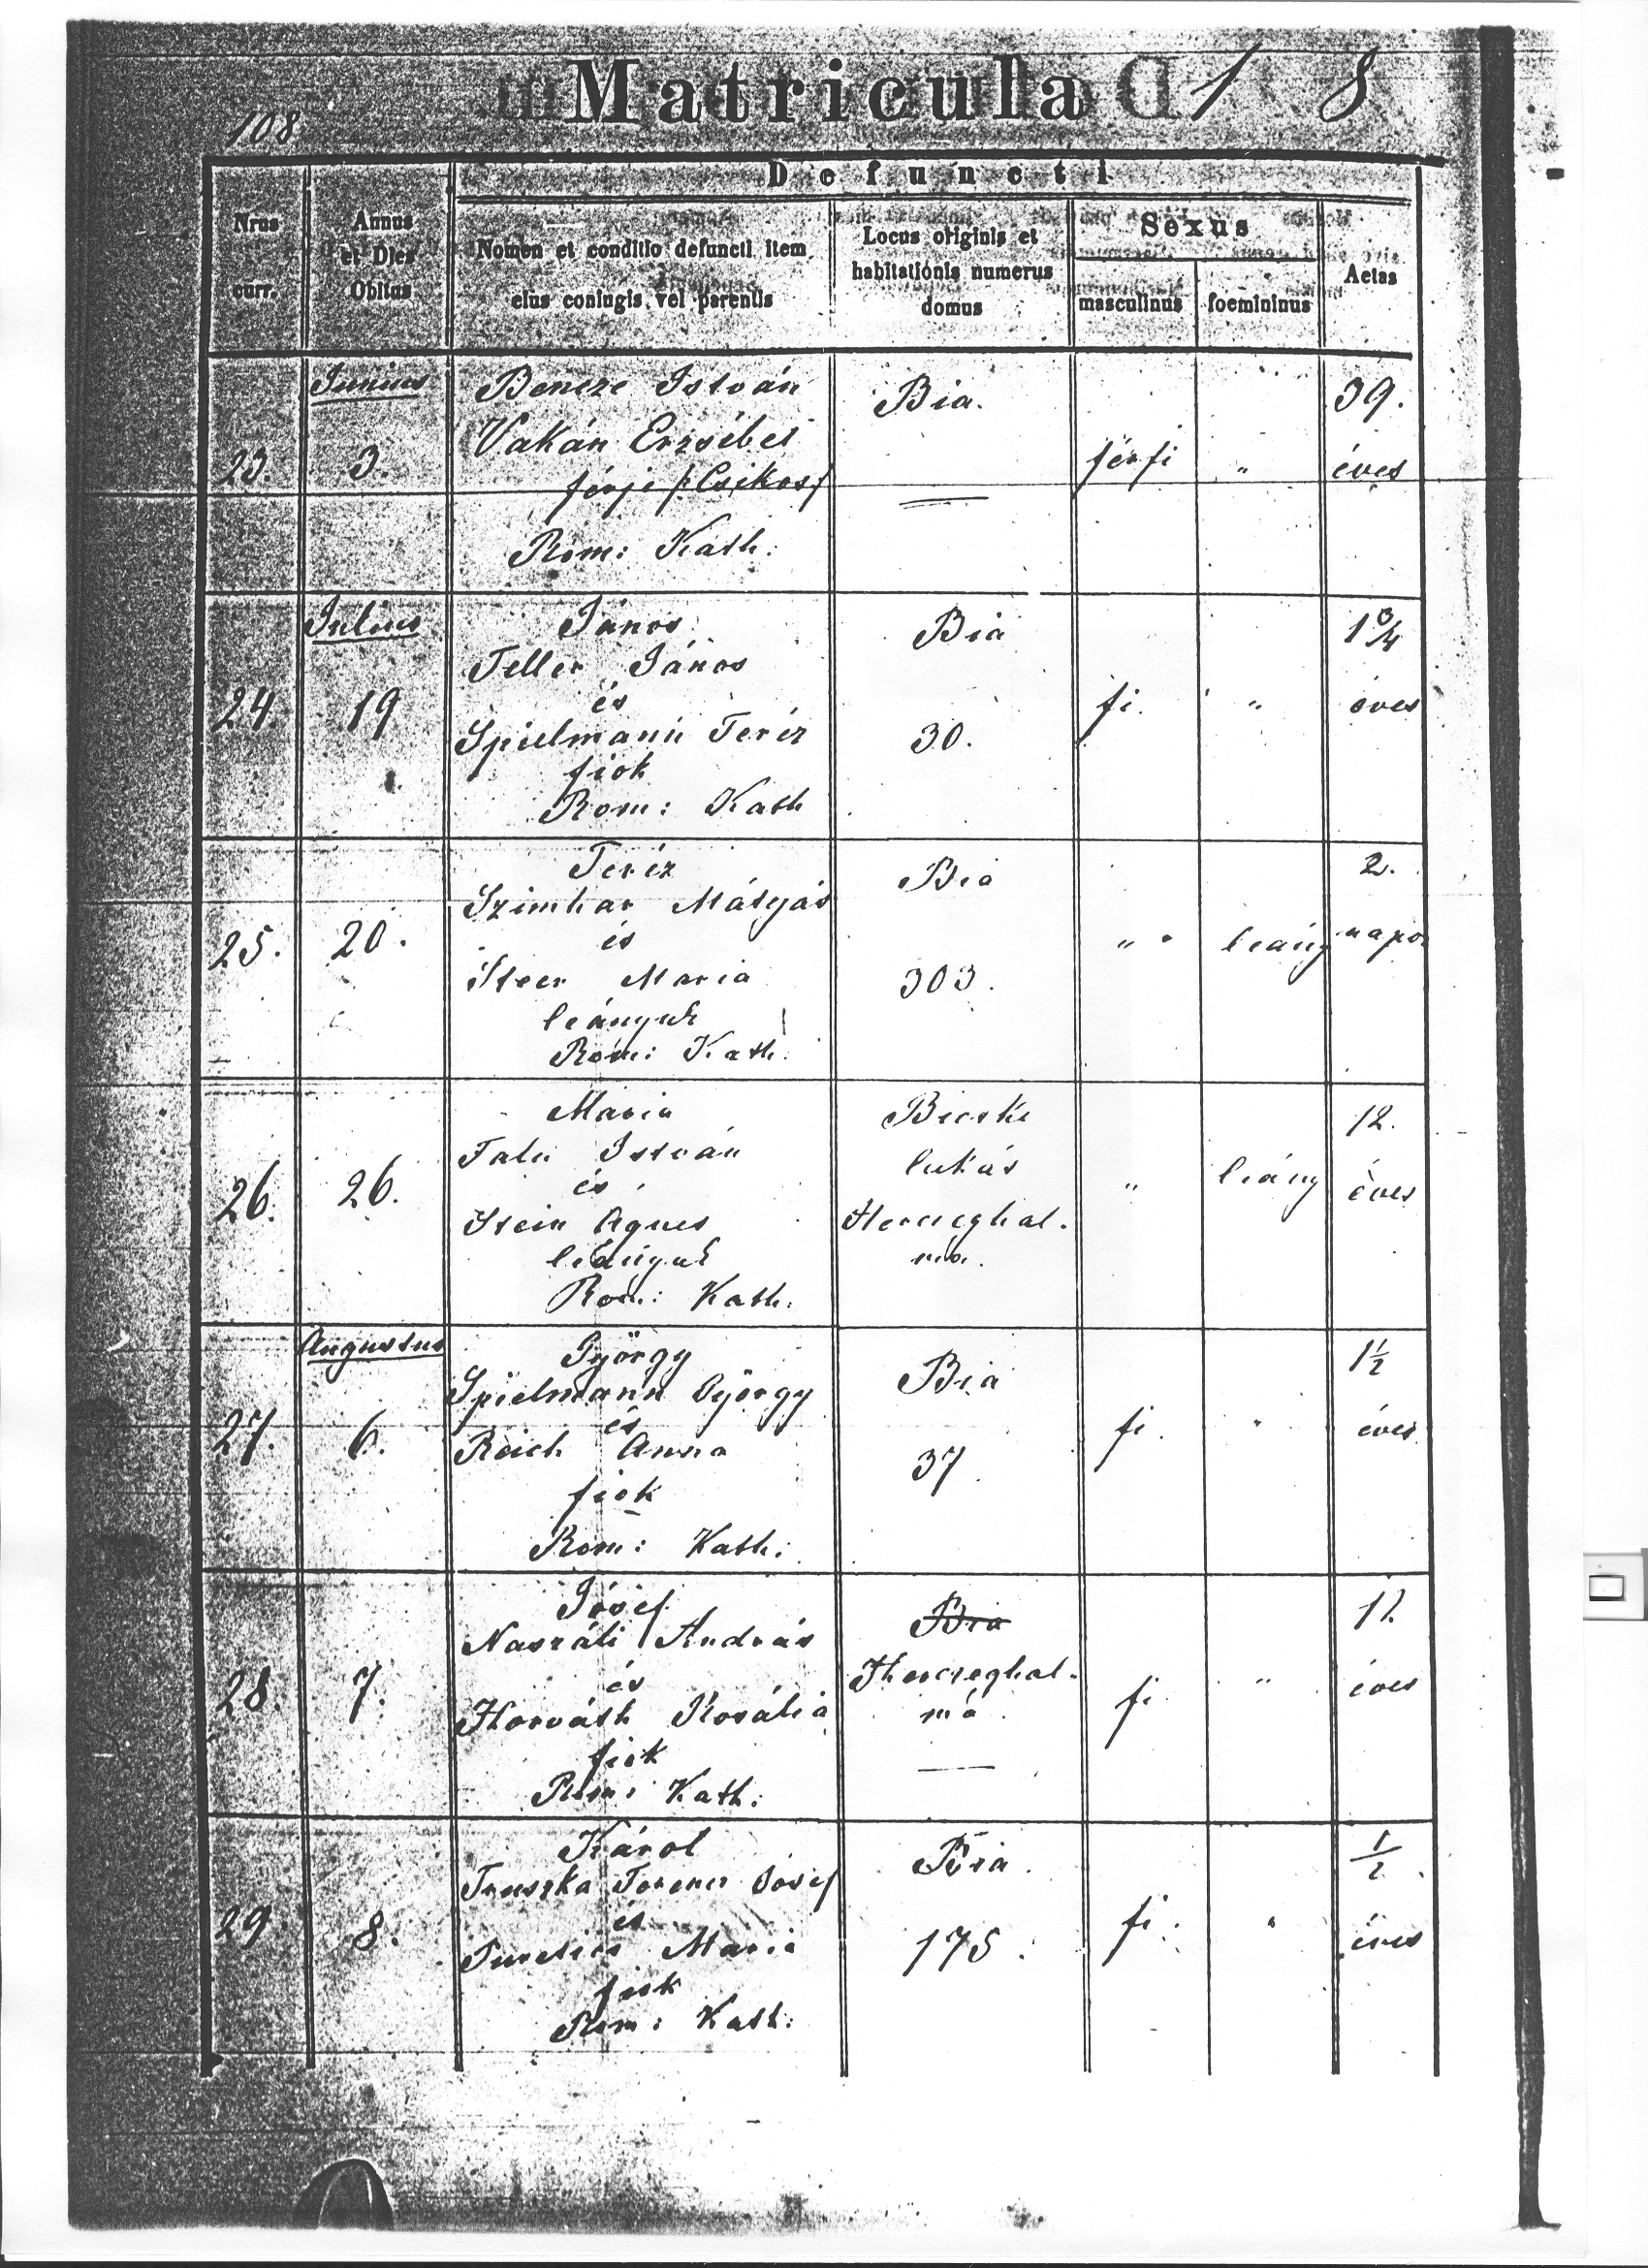 Matricula 1 8
108
Defuncti
Nrus curr.
Annus et Dies Obitus
Nomen et conditio defuncti item eius coniugis vel parentis
Locus originis et habitationis numerus domus
Sexus
masculinus
foemininus
Aetas
Junius
23.
3.
Bencze István
Vakán Erzsébet
férje /:Csikos/
Rom: Kath:
Bia.
férfi
"
39.
éves
Julius
24
19
János
Teller János
és
Spielmann Teréz
fiok
Rom: Kath
Bia
30.
fi.
"
1 3/4
éves
25.
20.
Teréz
Szimhar Mátyás
és
Steer Maria
leányuk
Rom: Kath:
Bia
303.
"
leány
2.
napo.
26.
26.
Maria
István
és
Stein Agnes
leányuk
Rom: Kath:
Bicske
lukás
Herczeghal-
ma.
"
leány
12.
éves
Augustus
27.
6.
György
Spielmann György
és
Reich Anna
fiok
Rom: Kath:
Bia
37.
fi.
"
1 1/2
éves
28.
7.
József
Naszáli András
és
Horváth Rosália
fiok
Rom: Kath:
Bia
Herczeghal-
má.
fi.
"
11.
éves
29.
8.
Károl
Truszka Ferencz Josef
és
Maria
fiok
Rom: Kath:
Bia.
175.
fi.
"
1/2
éves